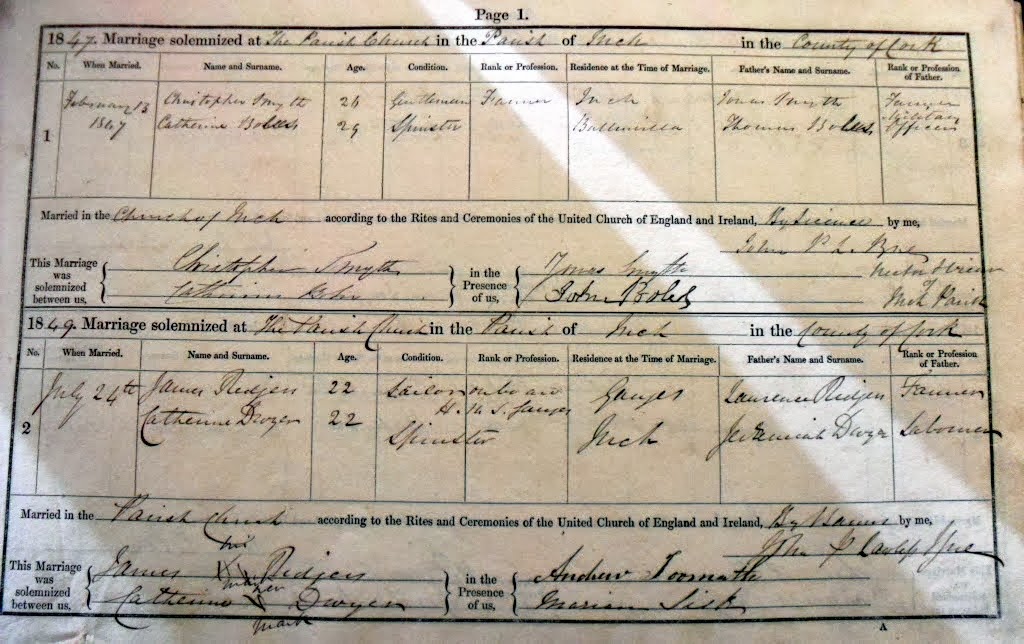 Page 1.
1847. Marriage solemnized at The Parish Church in the Parish of Inch in the County of Cork
No. When Married. Name and Surname. Age. Condition. Rank or Profession. Residence at the Time of Marriage. Father's Name and Surname. Rank or Profession of Father.
February 13 Christopher Smyth 26 Gentleman Farmer Inch Jonas Smyth Farmer
1847 Catherine Boles 29 Spinster Thomas Boles Military Officer
1
Married in the Church of Inch according to the Rites and Ceremonies of the United Church of England and Ireland, By Licence by me,
John
This Marriage was solemnized between us, Christopher Smyth in the Presence of us, Jonas Smyth
Catherine John Boles Inch Parish
1849. Marriage solemnized at The Parish Church in the Parish of Inch in the County of Cork
No. When Married. Name and Surname. Age. Condition. Rank or Profession. Residence at the Time of Marriage. Father's Name and Surname. Rank or Profession of Father.
July 24th James Ridjen 22 Sailor on board Ganges Laurence Ridjen Farmer
H.M.S. Ganges
2 Catherine Dwyer 22 Spinster Inch Jeremiah Dwyer Laborer
Married in the Parish Church according to the Rites and Ceremonies of the United Church of England and Ireland, By Banns by me,
John P
his
This Marriage was solemnized between us, James X Ridjen in the Presence of us, Andrew
Catherine X Dwyer Marian Sisk
mark
A